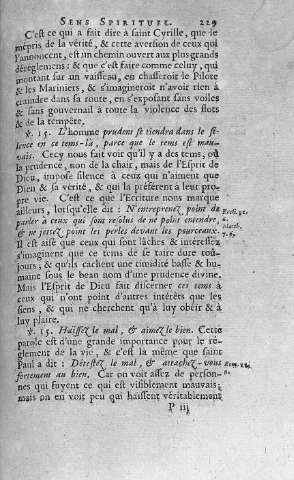 SENS SPIRITUEL. 229
C'est ce qui a fait dire à saint Cyrille, que le
mépris de la vérité, & cette aversion de ceux qui
l'annoncent, est un chemin ouvert aux plus grands
déréglemens; & que c'est faire comme celuy, qui
montant sur un vaisseau, en chasseroit le Pilote
& les Mariniers, & s'imagineroit n'avoir rien à
craindre dans sa route, en s'exposant sans voiles
& sans gouvernail à toute la violence des flots
& de la tempête.
℣. 13. L'homme prudent se tiendra dans le si-
lence en ce tems-là, parce que le tems est mau-
vais. Cecy nous fait voir qu'il y a des tems, où
la prudence, non de la chair, mais de l'Esprit de
Dieu, impose silence à ceux qui n'aiment que
Dieu & sa vérité, & qui la préferent à leur pro-
pre vie. C'est ce que l'Ecriture nous marque
ailleurs, lorsqu'elle dit : N'entreprenez point de
parler à ceux qui sont résolus de ne point entendre,
& ne jettez point les perles devant les pourceaux.
Il est aisé que ceux qui sont lâches & interessez
s'imaginent que ce tems de se taire dure toû-
jours; & qu'ils cachent une timidité basse & hu-
maine sous le beau nom d'une prudence divine.
Mais l'Esprit de Dieu fait discerner ces tems à
ceux qui n'ont point d'autres intérêts que les
siens, & qui ne cherchent qu'à luy obéïr & à
luy plaire.
℣. 15. Haïssez le mal, & aimez le bien. Cette
parole est d'une grande importance pour le ré-
glement de la vie, & c'est la même que saint
Paul a dit : Détestez le mal, & attachez-vous
fortement au bien. Car on voit assez de person-
nes qui fuyent ce qui est visiblement mauvais;
mais on en voit peu qui haïssent véritablement
P iij
Eccli. 32.
Matth.
7. 6.
Rom.